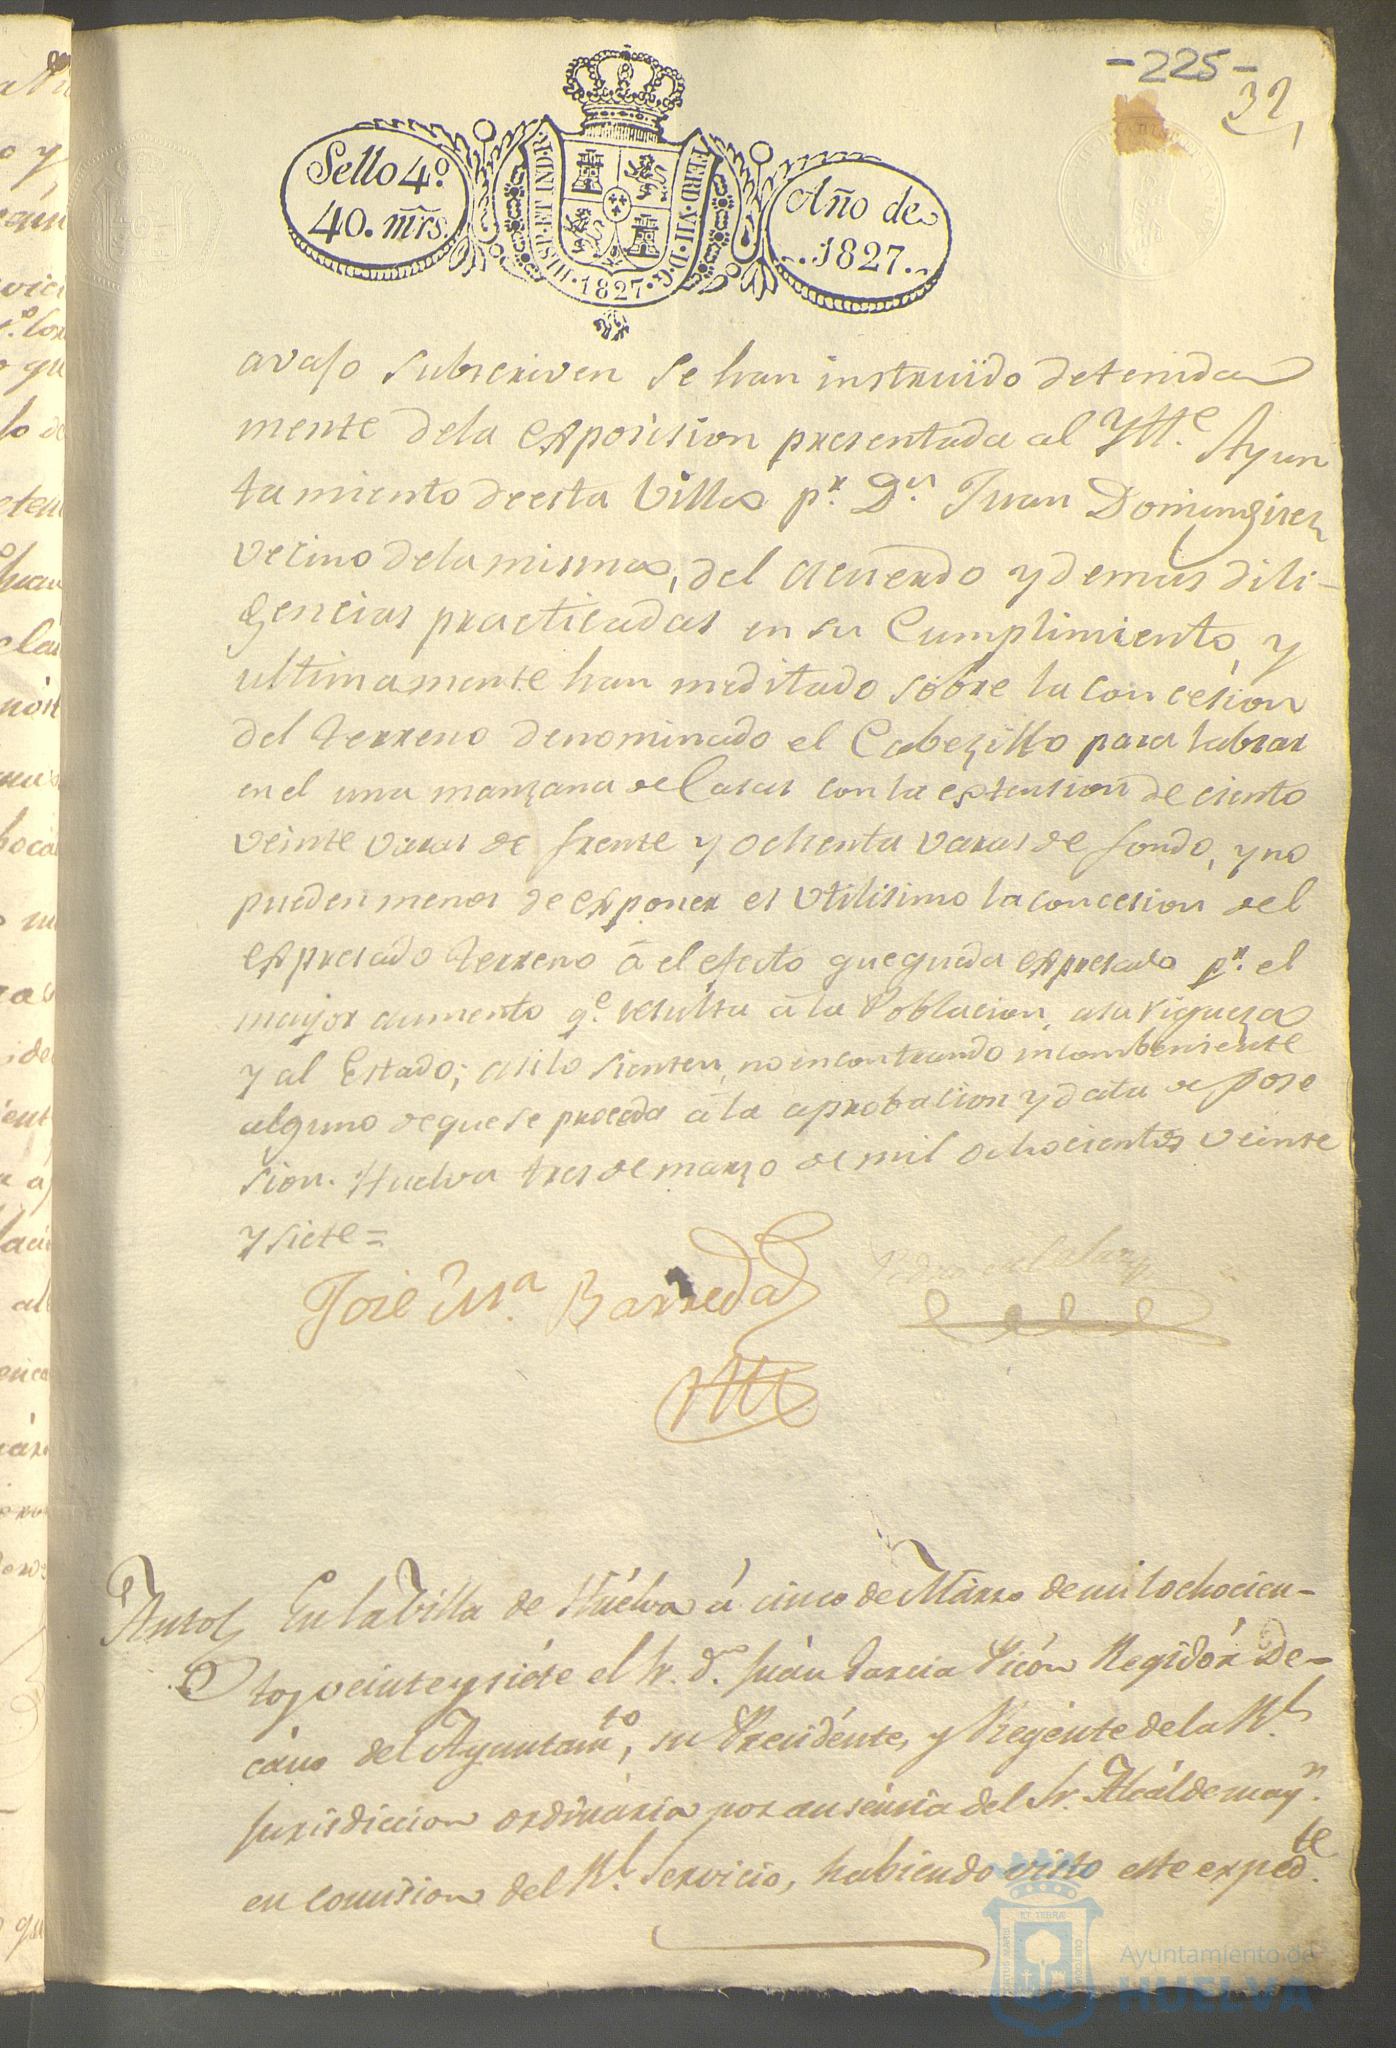 -225-
32
Sello 4º.
40. mrs.
HISP. ET IND. R.
FERD. VII. D. G.
1827
Año de
1827
avajo subscriven se han instruido detenida
mente dela exposision presentada al Ylle. Ayun
tamiento deesta Villa pr. Dn. Juan Dominguez
vecino dela misma, del acuerdo y demas dili-
gencias practicadas en su Cumplimiento, y
ultimamente han meditado sobre la concesion
del terreno denominado el Cabezillo para labrar
en el una manzana de Casas con la extension de ciento
veinte varas de frente y ochenta varas de fondo, y no
pueden menos de exponer es utilisimo la concesion del
expresado terreno á el efecto que queda expresado pr. el
mayor aumento qe. resulta á la Poblacion, ala riqueza
y al Estado; asi lo sienten, no encontrando incombeniente
alguno de que se proceda á la aprobacion y data de pose
sion. Huelva tres de marzo de mil ochocientos veinte
y siete =
José Ma. Barreda
Pedro
Auto En la Villa de Huelva á cinco de Marzo de mil ochocien-
tos veinte y siete el Sr. dn. Juan Garcia Picón Regidór De-
cáno del Ayuntamto., su Presidente, y Regénte de la Rl.
jurisdiccion ordinária por auséncia del Sr. Alcálde mayr.
en comision del Rl. Servicio, habiendo visto este expedte.
Ayuntamiento de
HUELVA